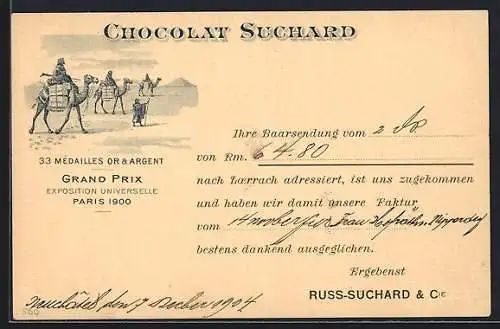 CHOCOLAT SUCHARD
33 MÉDAILLES OR & ARGENT
GRAND PRIX
EXPOSITION UNIVERSELLE
PARIS 1900
Ihre Baarsendung vom 2
von Rm. 64.80
nach Lœrrach adressiert, ist uns zugekommen
und haben wir damit unsere Faktur
vom Frau
bestens dankend ausgeglichen.
Ergebenst
RUSS-SUCHARD & Cie
den 7 1904